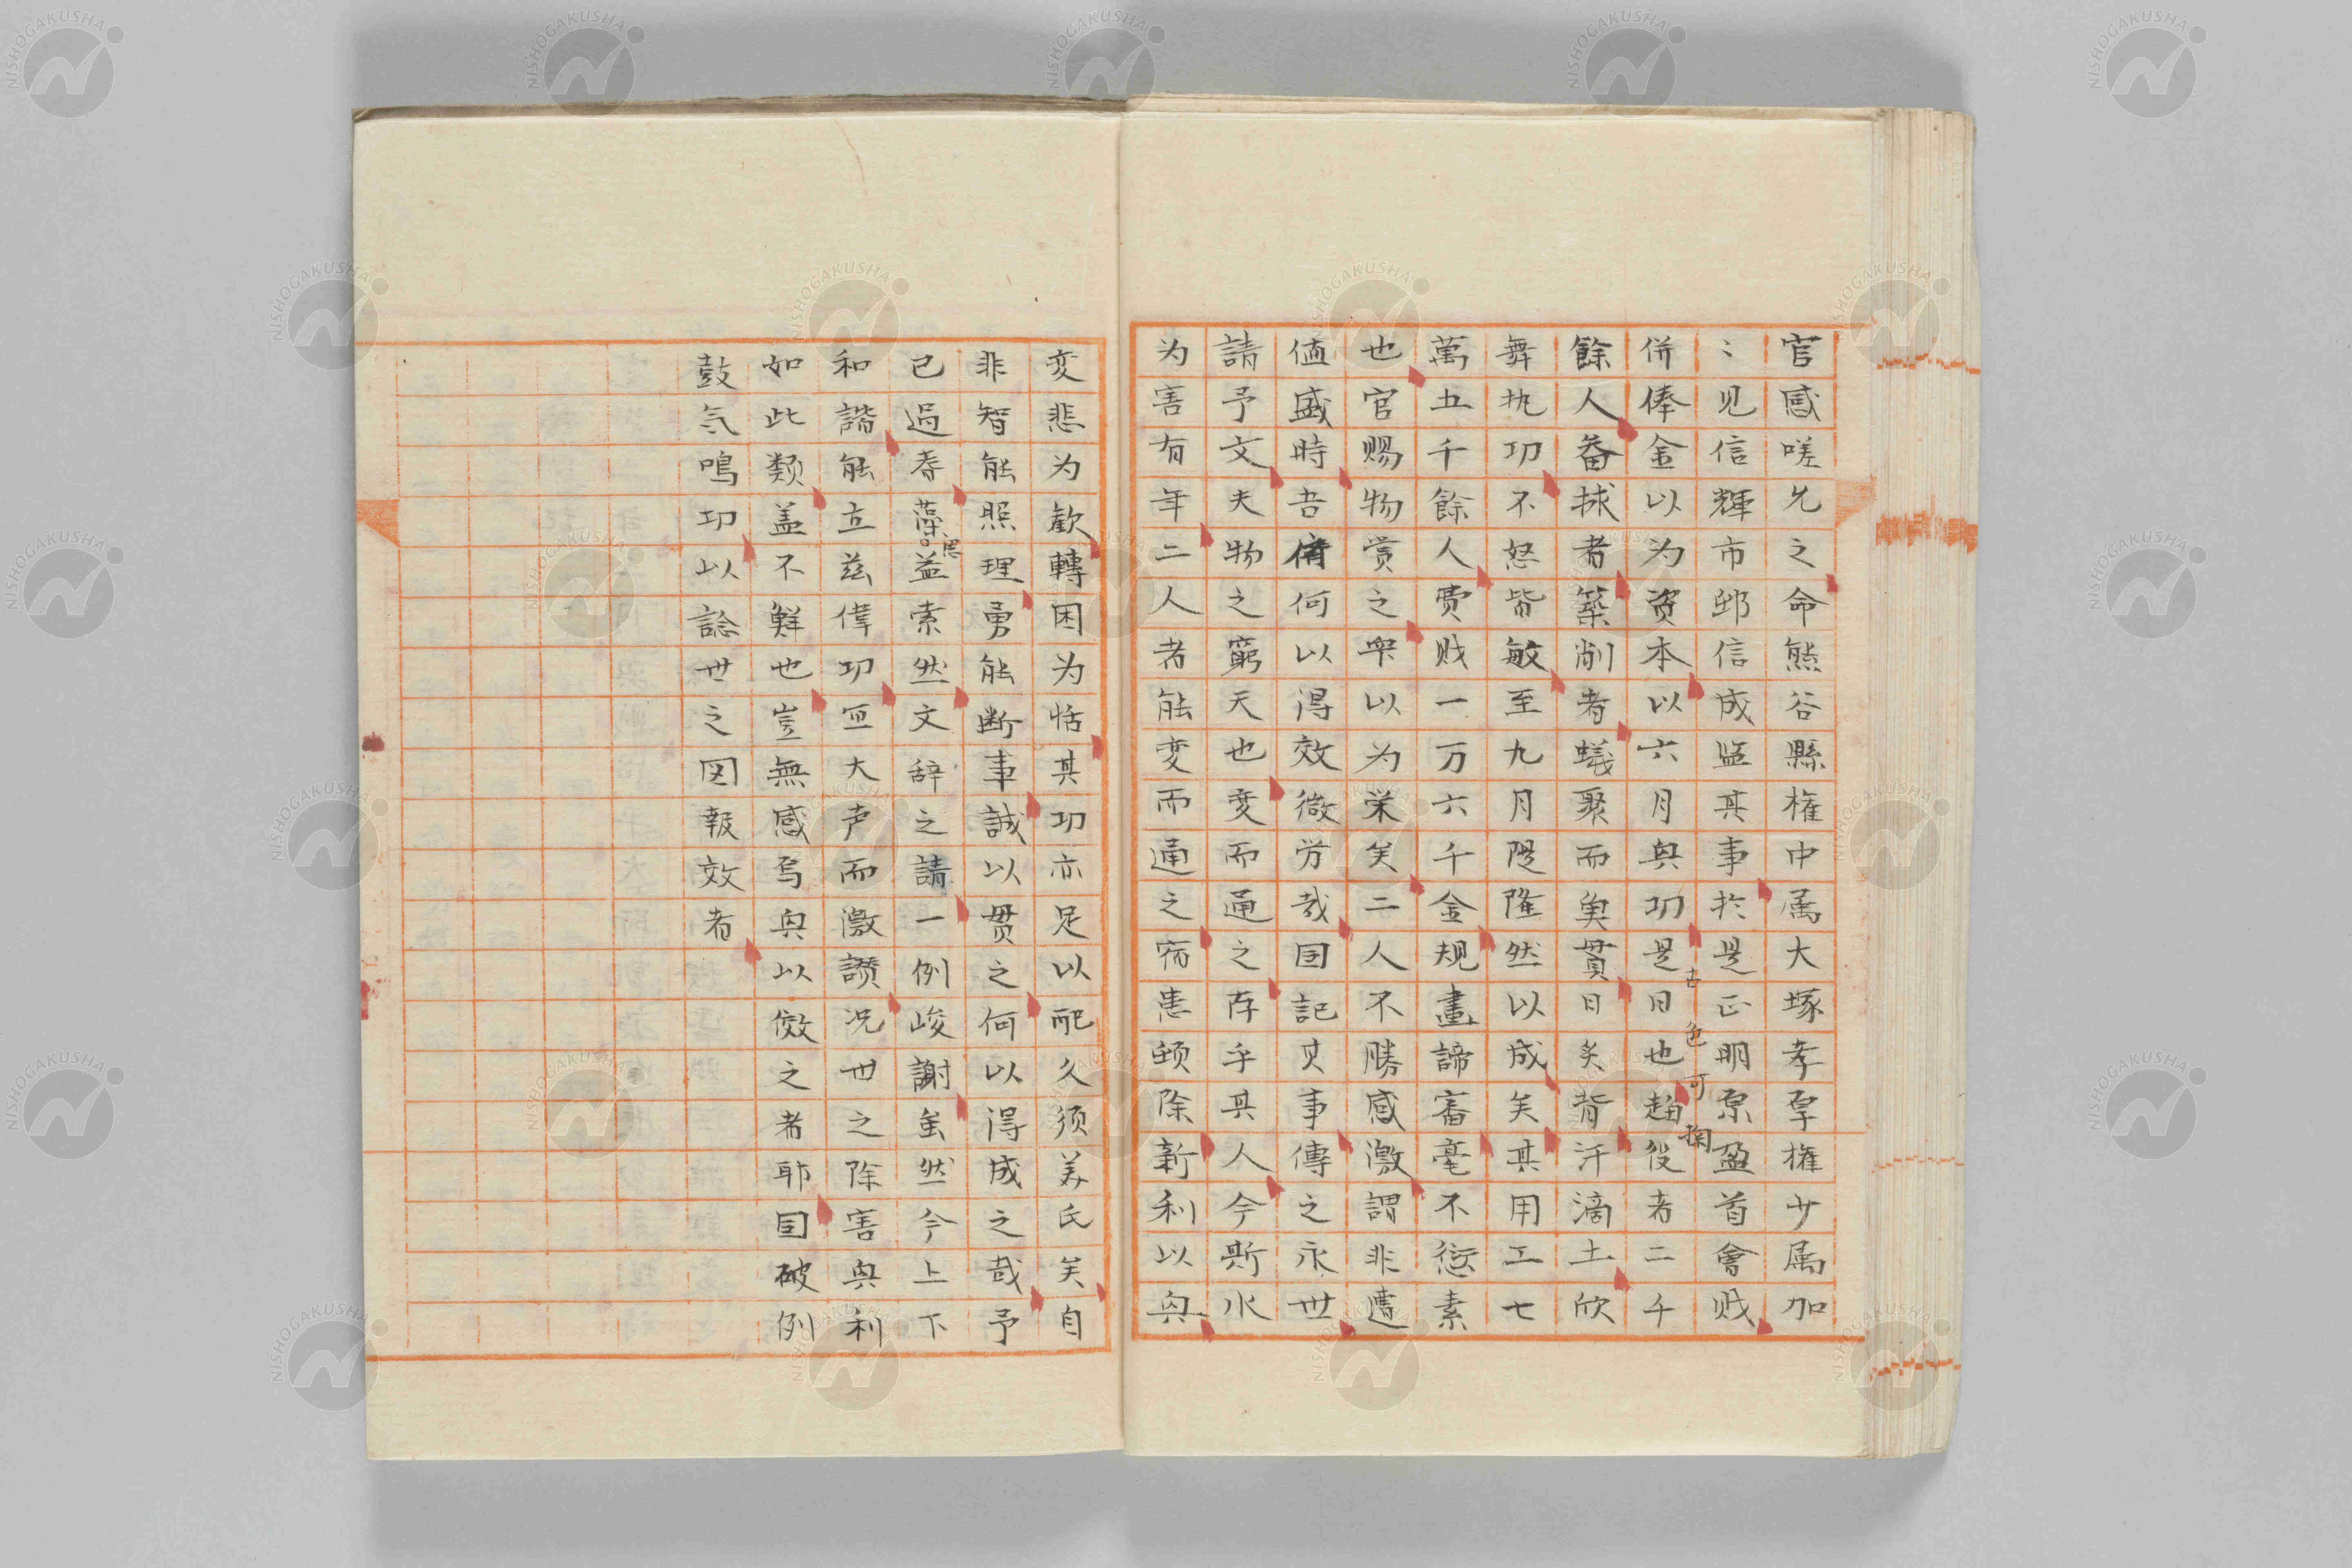 官感嗟允之命熊谷縣権中属大塚孝享権少属加
〻見信輝市邨信成監其事於是正明原盈首會貲
併俸金以为資本以六月與功是日也趨役者二千
古色可掬
餘人畚捄者築削者蟻聚而奥貫日炙背汗滴土欣
舞执功不怒皆敏至九月隄隆然以成矣其用工七
萬五千餘人費貲一万六千金規畫諦審毫不愆素
也官賜物赏之衆以为栄矣二人不勝感激謂非遭
値盛時吾儕何以得效微労哉因記其事傳之永世
請予文夫物之窮天也变而通之存乎其人今斯水
为害有年二人者能变而通之病患頓除新利以與
变悲为歓轉困为恬其功亦足以配久须美氏矣自
非智能照理勇能断事誠以贯之何以得成之哉予
已過春藻思益索然文辞之請一例峻謝虽然今上下
和諧能立兹偉功宜大声而激讃况世之除害與利
如此類盖不鮮也豈無感焉與以倣之者耶因破例
鼓気鳴功以諗世之図報效者
NISHOGAKUSHA